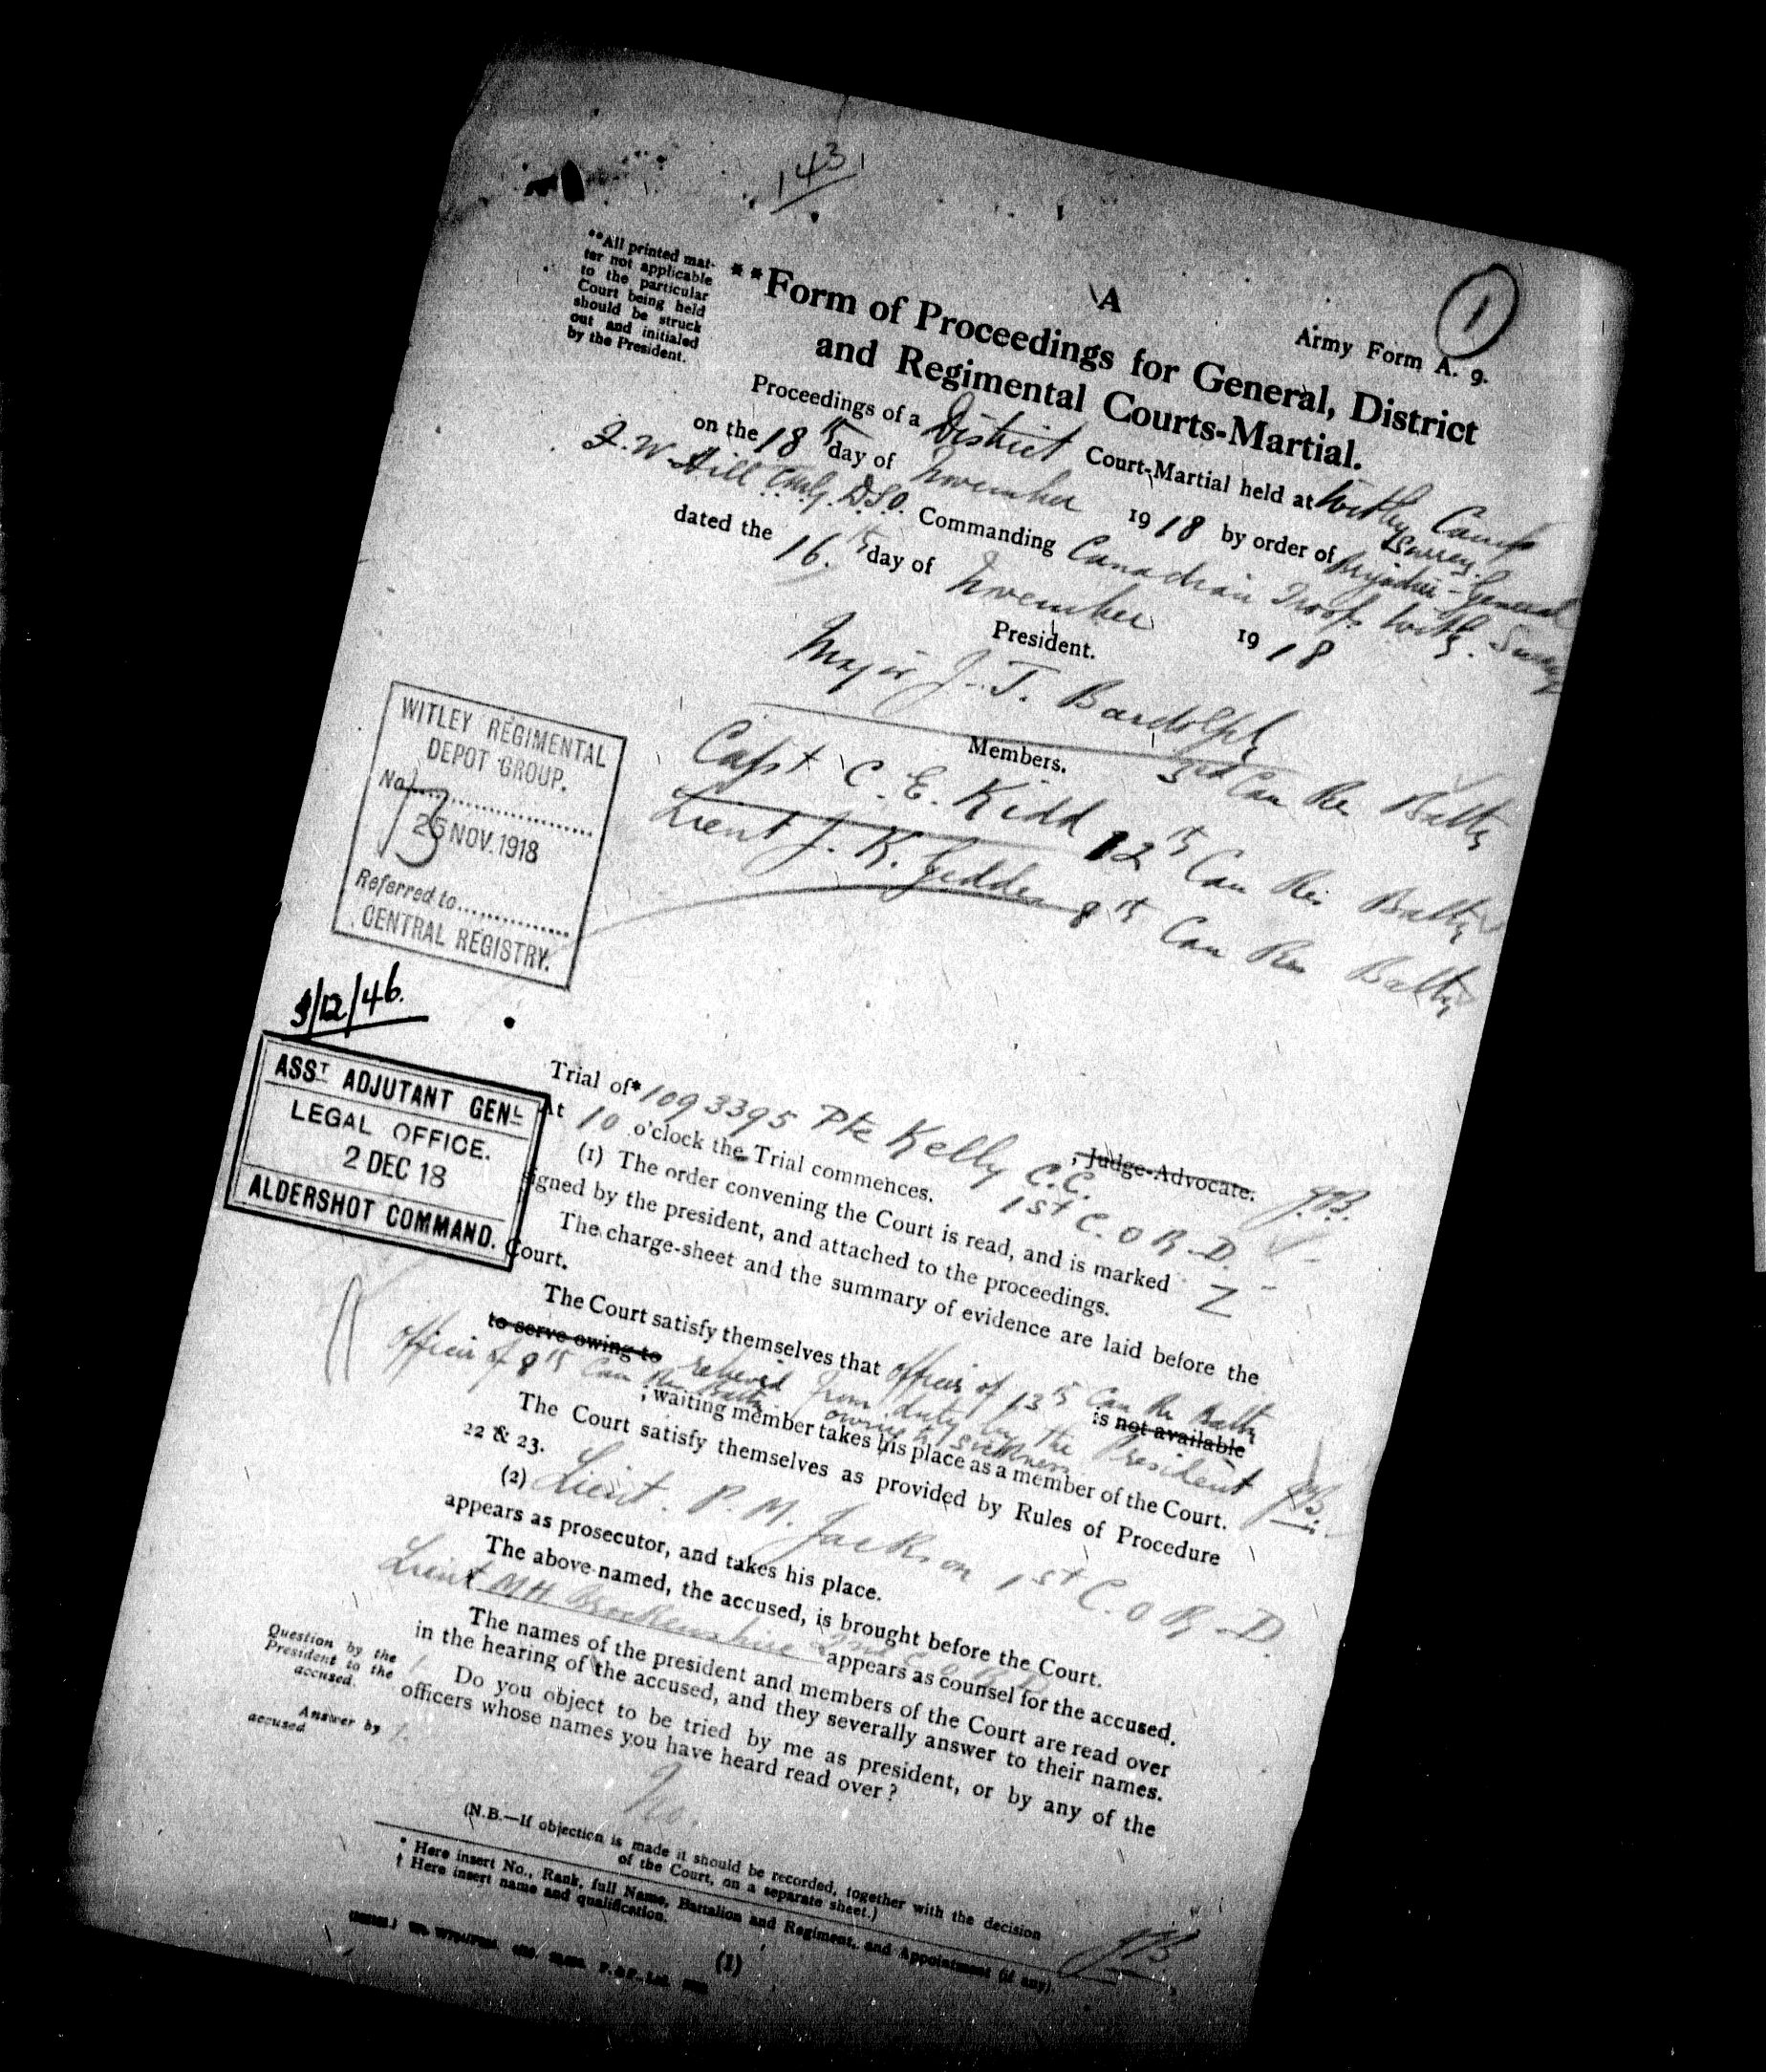 143
A
1
Army Form A. 9.
**All printed mat-
ter not applicable
to the particular
Court being held
should be struck
out and initialed
by the President.
**Form of Proceedings for General, District
and Regimental Courts-Martial.
Proceedings of a District Court-Martial held at Witley Camp
Surrey.
on the 18th day of November 1918 by order of Brigadier-General
F. W. Hill C.M.G. D.S.O. Commanding Canadian Troops Witley. Surrey
dated the 16.th day of November 1918
President.
Major J. T. Bardolph
3rd Can Res Battn
Members.
Capt C. E. Kidd 12th Can Res Battn
Lieut J. K. Geddes 8th Can Res Battn
WITLEY REGIMENTAL
DEPOT GROUP.
No
25 NOV. 1918
Referred to
CENTRAL REGISTRY.
3/12/46.
ASST ADJUTANT GENL
LEGAL OFFICE.
2 DEC 18
ALDERSHOT COMMAND.
; Judge-Advocate. J.B.
Trial of* 1093395 Pte Kelly C.C.
1st C.O.R.D.
At 10 o'clock the Trial commences.
(1) The order convening the Court is read, and is marked Z
signed by the president, and attached to the proceedings.
The charge-sheet and the summary of evidence are laid before the
Court.
The Court satisfy themselves that officer of 13th Can Res Battn
is not available
to serve owing to relieved from duty by the President
owing to sickness
officer of 8th Can Res Battn
; waiting member takes his place as a member of the Court.
The Court satisfy themselves as provided by Rules of Procedure
22 & 23.
(2) Lieut. P. M. Jackson 1st C.O.R.D.
appears as prosecutor, and takes his place.
The above-named, the accused, is brought before the Court.
Lieut MH Brokenshire 2nd C.O.R.D. appears as counsel for the accused.
The names of the president and members of the Court are read over
in the hearing of the accused, and they severally answer to their names.
Question by the
President to the
accused.
1. Do you object to be tried by me as president, or by any of the
officers whose names you have heard read over?
Answer by
accused
1. No.
(N.B.—If objection is made it should be recorded, together with the decision
of the Court, on a separate sheet.)
* Here insert No., Rank, full Name, Battalion and Regiment, and Appointment (if any).
† Here insert name and qualification.
J.B.
(1)